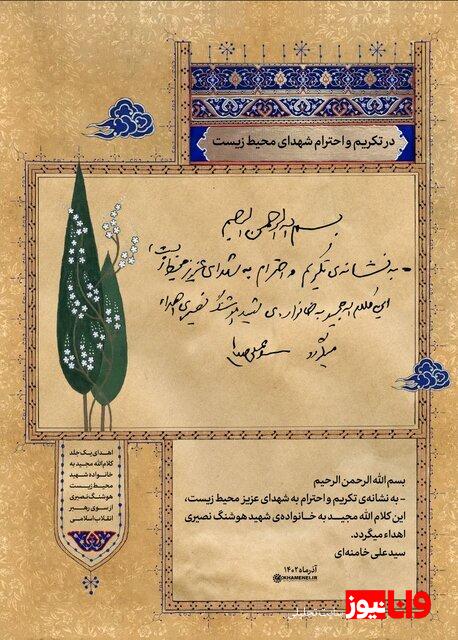 در تکریم و احترام شهدای محیط زیست
بسم الله الرحمن الرحیم
- به نشانه‌ی تکریم و احترام به شهدای عزیز محیط زیست،
این کلام الله مجید به خانواده‌ی شهید هوشنگ نصیری اهداء
میگردد سیدعلی خامنه‌ای
اهدای یک جلد
کلام الله مجید به
خانواده شهید
محیط زیست
هوشنگ نصیری
از سوی رهبر
انقلاب اسلامی
بسم الله الرحمن الرحیم
- به نشانه‌ی تکریم و احترام به شهدای عزیز محیط زیست،
این کلام الله مجید به خانواده‌ی شهید هوشنگ نصیری
اهداء میگردد.
سید علی خامنه‌ای
آذرماه ۱۴۰۲
KHAMENEI.IR
وانانیوز